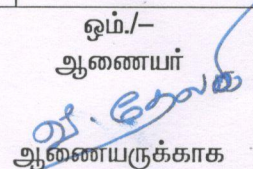 ஒம்./–
ஆணையர்
ஆணையருக்காக